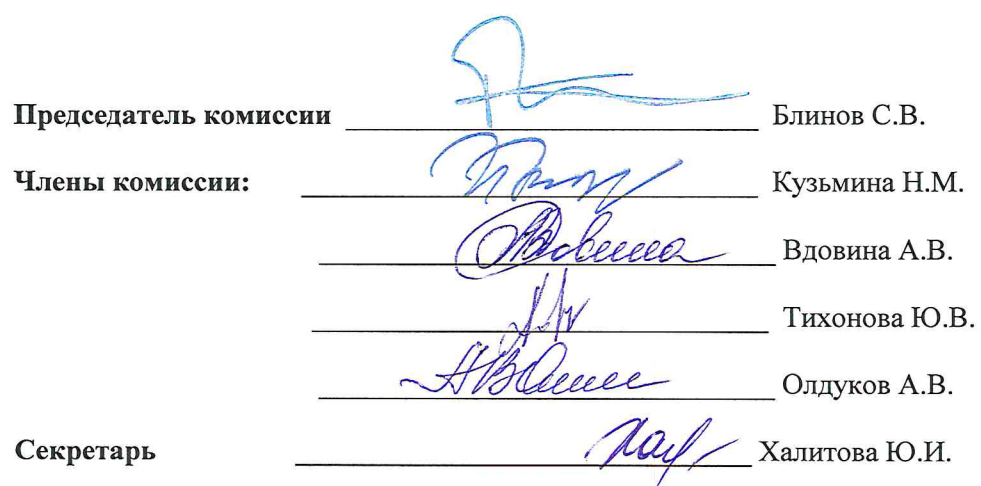 Председатель комиссии Блинов С.В.
Члены комиссии: Кузьмина Н.М.
Вдовина А.В.
Тихонова Ю.В.
Олдуков А.В.
Секретарь Халитова Ю.И.